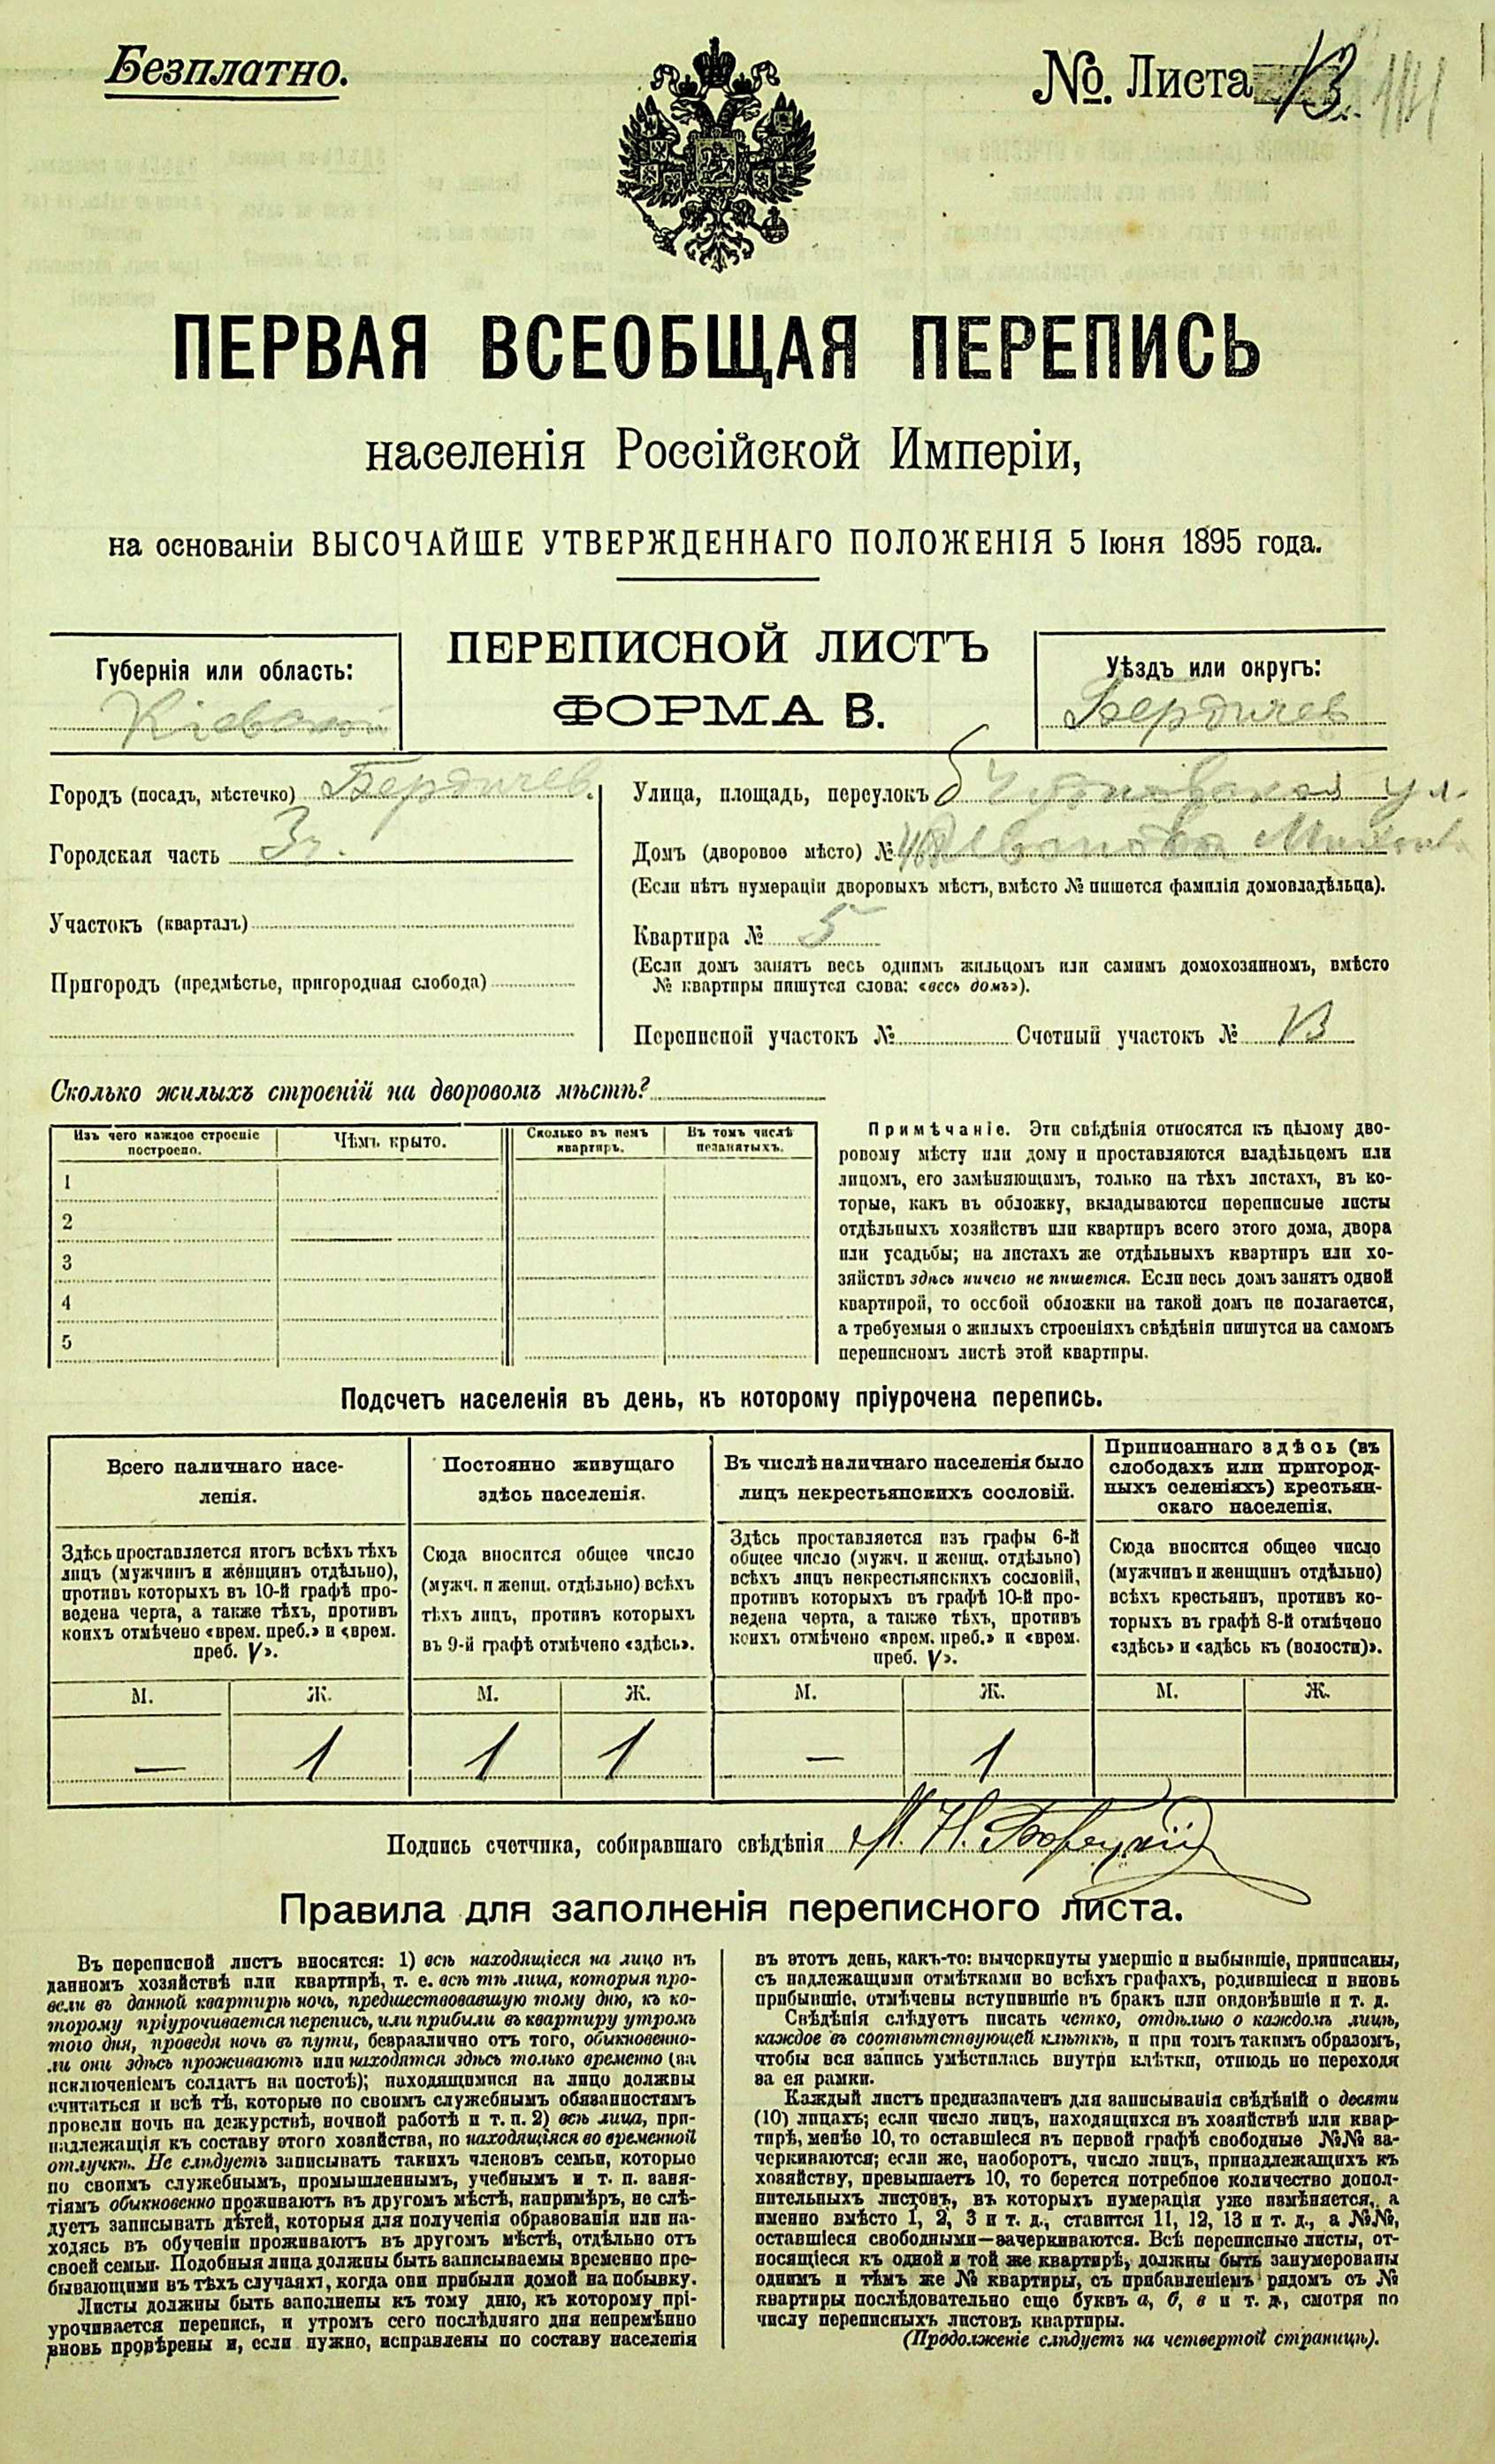 Безплатно.
№. Листа
ПЕРВАЯ ВСЕОБЩАЯ ПЕРЕПИСЬ
населенія Россійской Имперіи,
на основаніи ВЫСОЧАЙШЕ УТВЕРЖДЕННАГО ПОЛОЖЕНІЯ 5 Іюня 1895 года.
ПЕРЕПИСНОЙ ЛИСТЪ
ФОРМА В.
Губернія или область:
Кіевская
Уѣздъ или округъ:
Бердичев
Городъ (посадъ, мѣстечко) Бердичев.
Городская часть 3я.
Участокъ (кварталъ)
Пригородъ (предмѣстье, пригородная слобода)
Улица, площадь, переулокъ б Чудновская ул.
Домъ (дворовое мѣсто) № Иванова
(Если нѣтъ нумераціи дворовыхъ мѣстъ, вмѣсто № пишется фамилія домовладѣльца).
Квартира № 5
(Если домъ занятъ весь однимъ жильцомъ или самимъ домохозяиномъ, вмѣсто
№ квартиры пишутся слова: «весь домъ»).
Переписной участокъ № Счетный участокъ №
Сколько жилыхъ строеній на дворовомъ мѣстѣ?
Изъ чего каждое строеніе построено. Чѣмъ крыто. Сколько въ немъ квартиръ. Въ томъ числѣ незанятыхъ.
1
2
3
4
5
Примѣчаніе. Эти свѣдѣнія относятся къ цѣлому дво-
ровому мѣсту или дому и проставляются владѣльцемъ или
лицомъ, его замѣняющимъ, только на тѣхъ листахъ, въ ко-
торые, какъ въ обложку, вкладываются переписные листы
отдѣльныхъ хозяйствъ или квартиръ всего этого дома, двора
или усадьбы; на листахъ же отдѣльныхъ квартиръ или хо-
зяйствъ здѣсь ничего не пишется. Если весь домъ занятъ одной
квартирой, то особой обложки на такой домъ не полагается,
а требуемыя о жилыхъ строеніяхъ свѣдѣнія пишутся на самомъ
переписномъ листѣ этой квартиры.
Подсчетъ населенія въ день, къ которому пріурочена перепись.
Всего наличнаго насе-
ленія.
Здѣсь проставляется итогъ всѣхъ тѣхъ
лицъ (мужчинъ и женщинъ отдѣльно),
противъ которыхъ въ 10-й графѣ про-
ведена черта, а также тѣхъ, противъ
коихъ отмѣчено «врем. преб.» и «врем.
преб. V».
М. Ж.
— 1
Постоянно живущаго
здѣсь населенія.
Сюда вносится общее число
(мужч. и женщ. отдѣльно) всѣхъ
тѣхъ лицъ, противъ которыхъ
въ 9-й графѣ отмѣчено «здѣсь».
М. Ж.
1 1
Въ числѣ наличнаго населенія было
лицъ некрестьянскихъ сословій.
Здѣсь проставляется изъ графы 6-й
общее число (мужч. и женщ. отдѣльно)
всѣхъ лицъ некрестьянскихъ сословій,
противъ которыхъ въ графѣ 10-й про-
ведена черта, а также тѣхъ, противъ
коихъ отмѣчено «врем. преб.» и «врем.
преб. V».
М. Ж.
— 1
Приписаннаго здѣсь (въ
слободахъ или пригород-
ныхъ селеніяхъ) крестьян-
скаго населенія.
Сюда вносится общее число
(мужчинъ и женщинъ отдѣльно)
всѣхъ крестьянъ, противъ ко-
торыхъ въ графѣ 8-й отмѣчено
«здѣсь» и «здѣсь къ (волости)».
М. Ж.
Подпись счетчика, собиравшаго свѣдѣнія М. Н.
Правила для заполненія переписного листа.
Въ переписной листъ вносятся: 1) всѣ находящіеся на лицо въ
данномъ хозяйствѣ или квартирѣ, т. е. всѣ тѣ лица, которыя про-
вели въ данной квартирѣ ночь, предшествовавшую тому дню, къ ко-
торому пріурочивается перепись, или прибыли въ квартиру утромъ
того дня, проведя ночь въ пути, безразлично отъ того, обыкновенно-
ли они здѣсь проживаютъ или находятся здѣсь только временно (за
исключеніемъ солдатъ на постоѣ); находящимися на лицо должны
считаться и всѣ тѣ, которые по своимъ служебнымъ обязанностямъ
провели ночь на дежурствѣ, ночной работѣ и т. п. 2) всѣ лица, при-
надлежащія къ составу этого хозяйства, но находящіяся во временной
отлучкѣ. Не слѣдуетъ записывать такихъ членовъ семьи, которые
по своимъ служебнымъ, промышленнымъ, учебнымъ и т. п. заня-
тіямъ обыкновенно проживаютъ въ другомъ мѣстѣ, напримѣръ, не слѣ-
дуетъ записывать дѣтей, которыя для полученія образованія или на-
ходясь въ обученіи проживаютъ въ другомъ мѣстѣ, отдѣльно отъ
своей семьи. Подобныя лица должны быть записываемы временно пре-
бывающими въ тѣхъ случаяхъ, когда они прибыли домой на побывку.
Листы должны быть заполнены къ тому дню, къ которому прі-
урочивается перепись, и утромъ сего послѣдняго дня непремѣнно
вновь провѣрены и, если нужно, исправлены по составу населенія
въ этотъ день, какъ-то: вычеркнуты умершіе и выбывшіе, приписаны,
съ надлежащими отмѣтками во всѣхъ графахъ, родившіеся и вновь
прибывшіе, отмѣчены вступившіе въ бракъ или овдовѣвшіе и т. д.
Свѣдѣнія слѣдуетъ писать четко, отдѣльно о каждомъ лицѣ,
каждое въ соотвѣтствующей клѣткѣ, и при томъ такимъ образомъ,
чтобы вся запись умѣстилась внутри клѣтки, отнюдь не переходя
за ея рамки.
Каждый листъ предназначенъ для записыванія свѣдѣній о десяти
(10) лицахъ; если число лицъ, находящихся въ хозяйствѣ или квар-
тирѣ, менѣе 10, то оставшіеся въ первой графѣ свободные №№ за-
черкиваются; если же, наоборотъ, число лицъ, принадлежащихъ къ
хозяйству, превышаетъ 10, то берется потребное количество допол-
нительныхъ листовъ, въ которыхъ нумерація уже измѣняется, а
именно вмѣсто 1, 2, 3 и т. д., ставится 11, 12, 13 и т. д., а №№,
оставшіеся свободными—зачеркиваются. Всѣ переписные листы, от-
носящіеся къ одной и той же квартирѣ, должны быть занумерованы
однимъ и тѣмъ же № квартиры, съ прибавленіемъ рядомъ съ №
квартиры послѣдовательно еще буквъ а, б, в и т. д., смотря по
числу переписныхъ листовъ квартиры.
(Продолженіе слѣдуетъ на четвертой страницѣ).